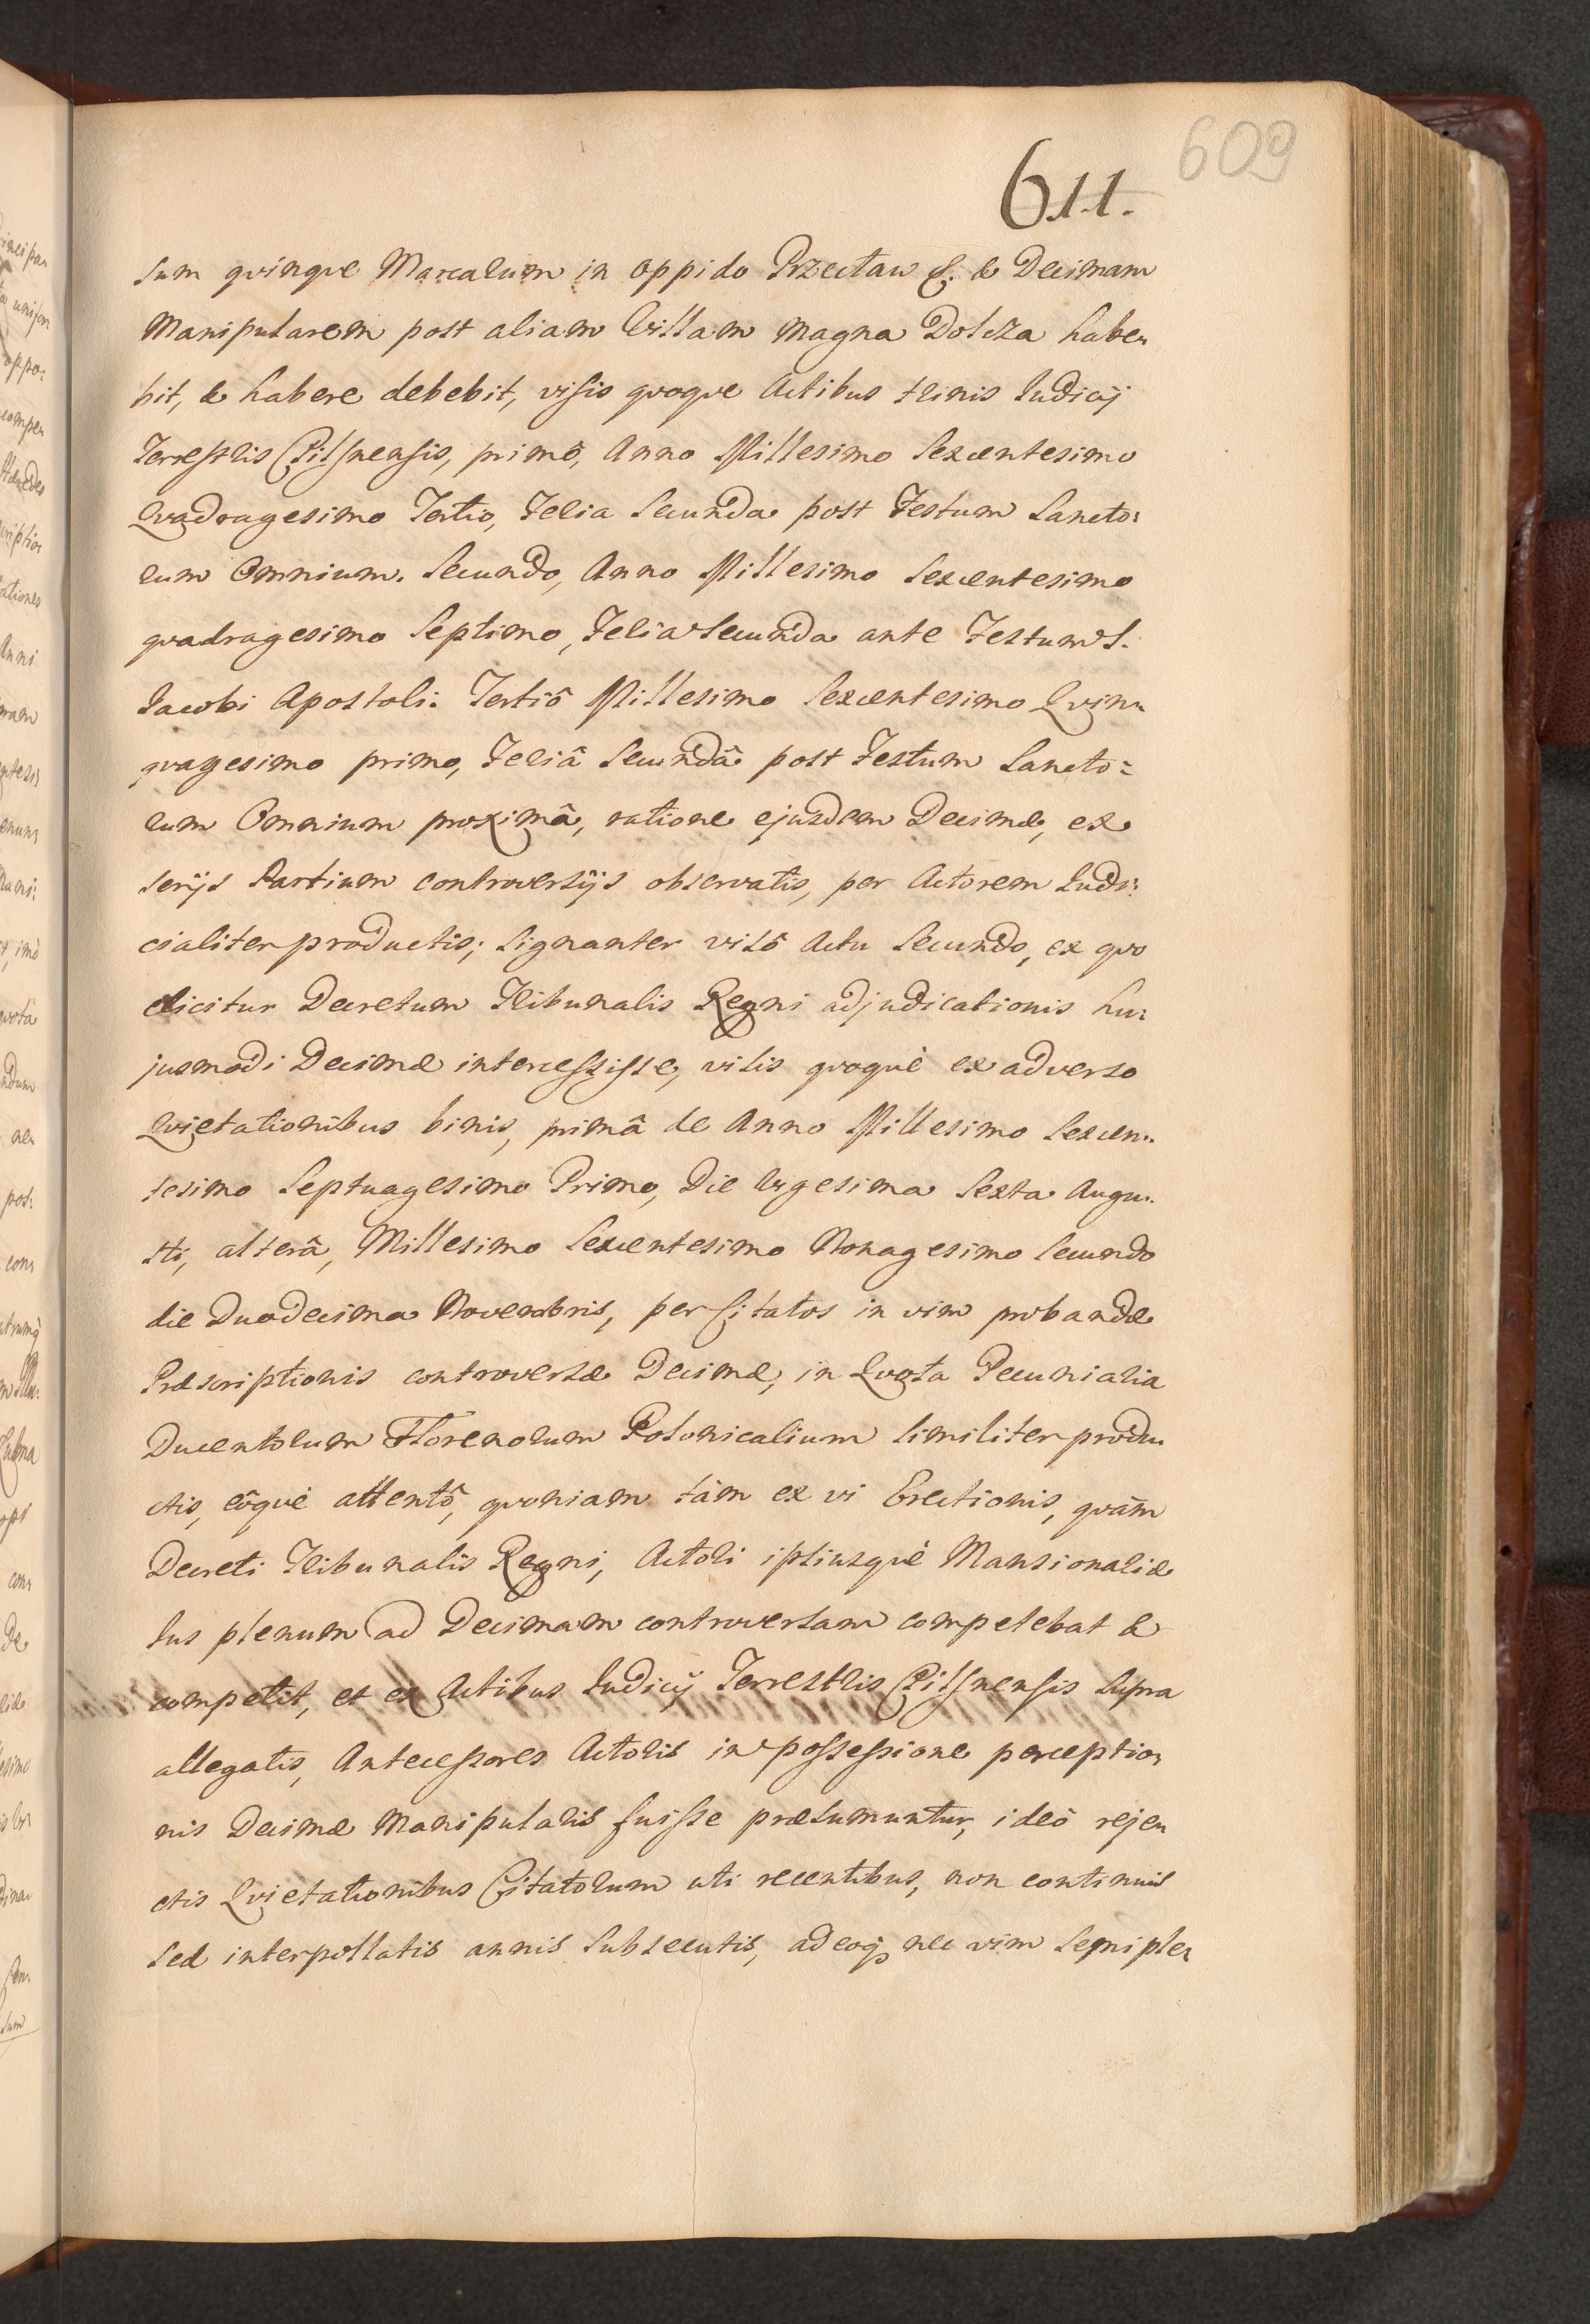 609
611.
sum quinque Marcarum in oppido Przecław & & Decimam
Manipularem post aliam Villam Magna Dolcza habe„
bit, & habere debebit, visis quoque Actibus trinis Iudicij
Terrestris Pilsnensis, primô, Anno Millesimo Sexcentesimo
Quadragesimo Tertio, Feria Secunda post Festum Sancto:
rum Omnium. Secundo, Anno Millesimo Sexcentesimo
quadragesimo Septimo, Feria Secunda ante Festum S.
Iacobi Apostoli. Tertiô Millesimo Sexcentesimo Quin„
quagesimo primo, Feriâ Secundâ post Festum Sancto:
rum Omnium proximâ, ratione ejusdem Decimæ, ex
serijs Partium controversijs observatis, per Actorem Iudi:
cialiter productis; Signanter visô Actu Secundo, ex quo
elicitur Decretum Tribunalis Regni adjudicationis hu:
jusmodi Decimæ intercessisse, visis quoquè ex adverso
Quietationibus binis, primâ de Anno Millesimo Sexcen„
tesimo Septuagesimo Primo, Die Vigesima Sexta Augu„
sti, alterâ, Millesimo Sexcentesimo Nonagesimo Secundo
die Duodecima Novembris, per Citatos in vim probandæ
Præscriptionis controversæ Decimæ, in Quota Pecuniaria
Ducentorum Florenorum Polonicalium similiter produ„
ctis, eôquè attentô, quoniam tàm ex vi Erectionis, quàm
Decreti Tribunalis Regni, Actori ipsiusquè Mansionariæ
Ius plenum ad Decimam controversam competebat &
competit, et ex Actibus Iudicij Terrestris Pilsnensis supra
allegatis, Antecessores Actoris in possessione perceptio„
nis Decimæ Manipularis fuisse præsumuntur, ideò reje„
ctis Quietationibus Citatorum uti recentibus, non continuis
sed interpollatis annis subsecutis, adeoq; nec vim semiple„